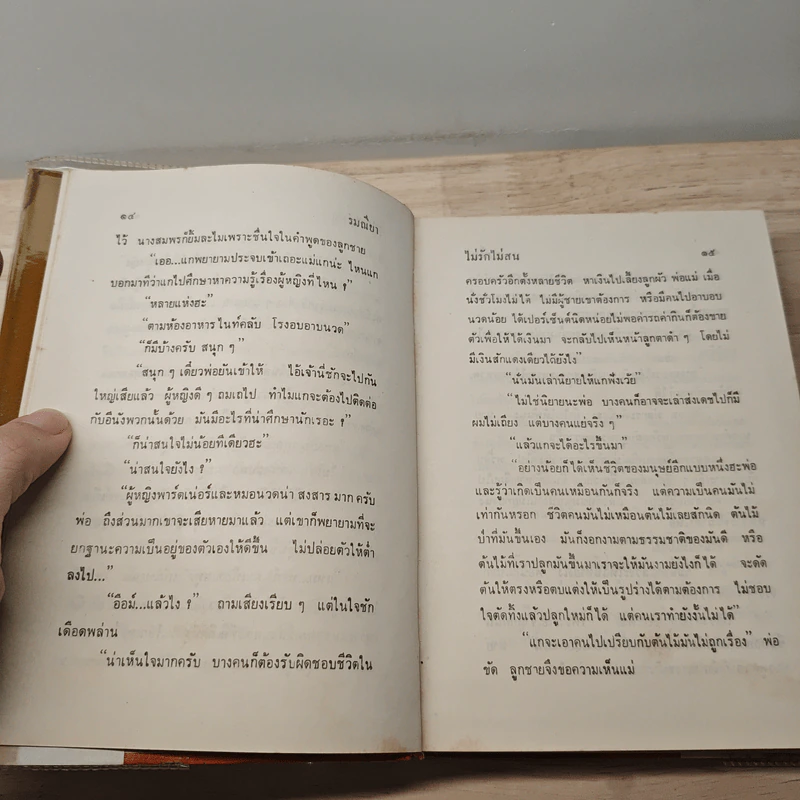 ๑๔
รมณียา
ไว้ นางสมพรก็ยิ้มละไมเพราะชื่นใจในคำพูดของลูกชาย
“เออ...แกพยายามประจบเข้าเถอะแม่แกน่ะ ไหนแก
บอกมาทีว่าแกไปศึกษาหาความรู้เรื่องผู้หญิงที่ไหน ?”
“หลายแห่งฮะ”
“ตามห้องอาหาร ไนท์คลับ โรงอบอาบนวด”
“ก็มีบ้างครับ สนุก ๆ”
“สนุก ๆ เดี๋ยวพ่อยันเข้าให้ ไอ้เจ้านี่ชักจะไปกัน
ใหญ่เสียแล้ว ผู้หญิงดี ๆ ถมเถไป ทำไมแกจะต้องไปติดต่อ
กับอีนังพวกนั้นด้วย มันมีอะไรที่น่าศึกษานักเรอะ ?”
“ก็น่าสนใจไม่น้อยทีเดียวฮะ”
“น่าสนใจยังไง ?”
“ผู้หญิงพาร์ตเน่อร์และหมอนวดน่า สงสาร มาก ครับ
พ่อ ถึงส่วนมากเขาจะเสียหายมาแล้ว แต่เขาก็พยายามที่จะ
ยกฐานะความเป็นอยู่ของตัวเองให้ดีขึ้น ไม่ปล่อยตัวให้ต่ำ
ลงไป...”
“อือม์...แล้วไง ?” ถามเสียงเรียบ ๆ แต่ในใจชัก
เดือดพล่าน
“น่าเห็นใจมากครับ บางคนก็ต้องรับผิดชอบชีวิตใน
ไม่รักไม่สน
๑๕
ครอบครัวอีกตั้งหลายชีวิต หาเงินไปเลี้ยงลูกผัว พ่อแม่ เมื่อ
นั่งชั่วโมงไม่ได้ ไม่มีผู้ชายเขาต้องการ หรือมีคนไปอาบอบ
นวดน้อย ได้เปอร์เซ็นต์นิดหน่อยไม่พอค่ารถค่ากินก็ต้องขาย
ตัวเพื่อให้ได้เงินมา จะกลับไปเห็นหน้าลูกตาดำ ๆ โดยไม่
มีเงินสักแดงเดียวได้ยังไง”
“นั่นมันเล่านิยายให้แกฟังเว้ย”
“ไม่ใช่นิยายนะพ่อ บางคนก็อาจจะเล่าส่งเดชไปก็มี
ผมไม่เถียง แต่บางคนแย่จริง ๆ”
“แล้วแกจะได้อะไรขึ้นมา”
“อย่างน้อยก็ได้เห็นชีวิตของมนุษย์อีกแบบหนึ่งฮะพ่อ
และรู้ว่าเกิดเป็นคนเหมือนกันก็จริง แต่ความเป็นคนมันไม่
เท่ากันหรอก ชีวิตคนมันไม่เหมือนต้นไม้เลยสักนิด ต้นไม้
ป่าที่มันขึ้นเอง มันก็งอกงามตามธรรมชาติของมันดี หรือ
ต้นไม้ที่เราปลูกมันขึ้นมาเราจะให้มันงามยังไงก็ได้ จะดัด
ต้นให้ตรงหรือตบแต่งให้เป็นรูปร่างได้ตามต้องการ ไม่ชอบ
ใจตัดทิ้งแล้วปลูกใหม่ก็ได้ แต่คนเราทำยังงั้นไม่ได้”
“แกจะเอาคนไปเปรียบกับต้นไม้มันไม่ถูกเรื่อง” พ่อ
ขัด ลูกชายจึงขอความเห็นแม่